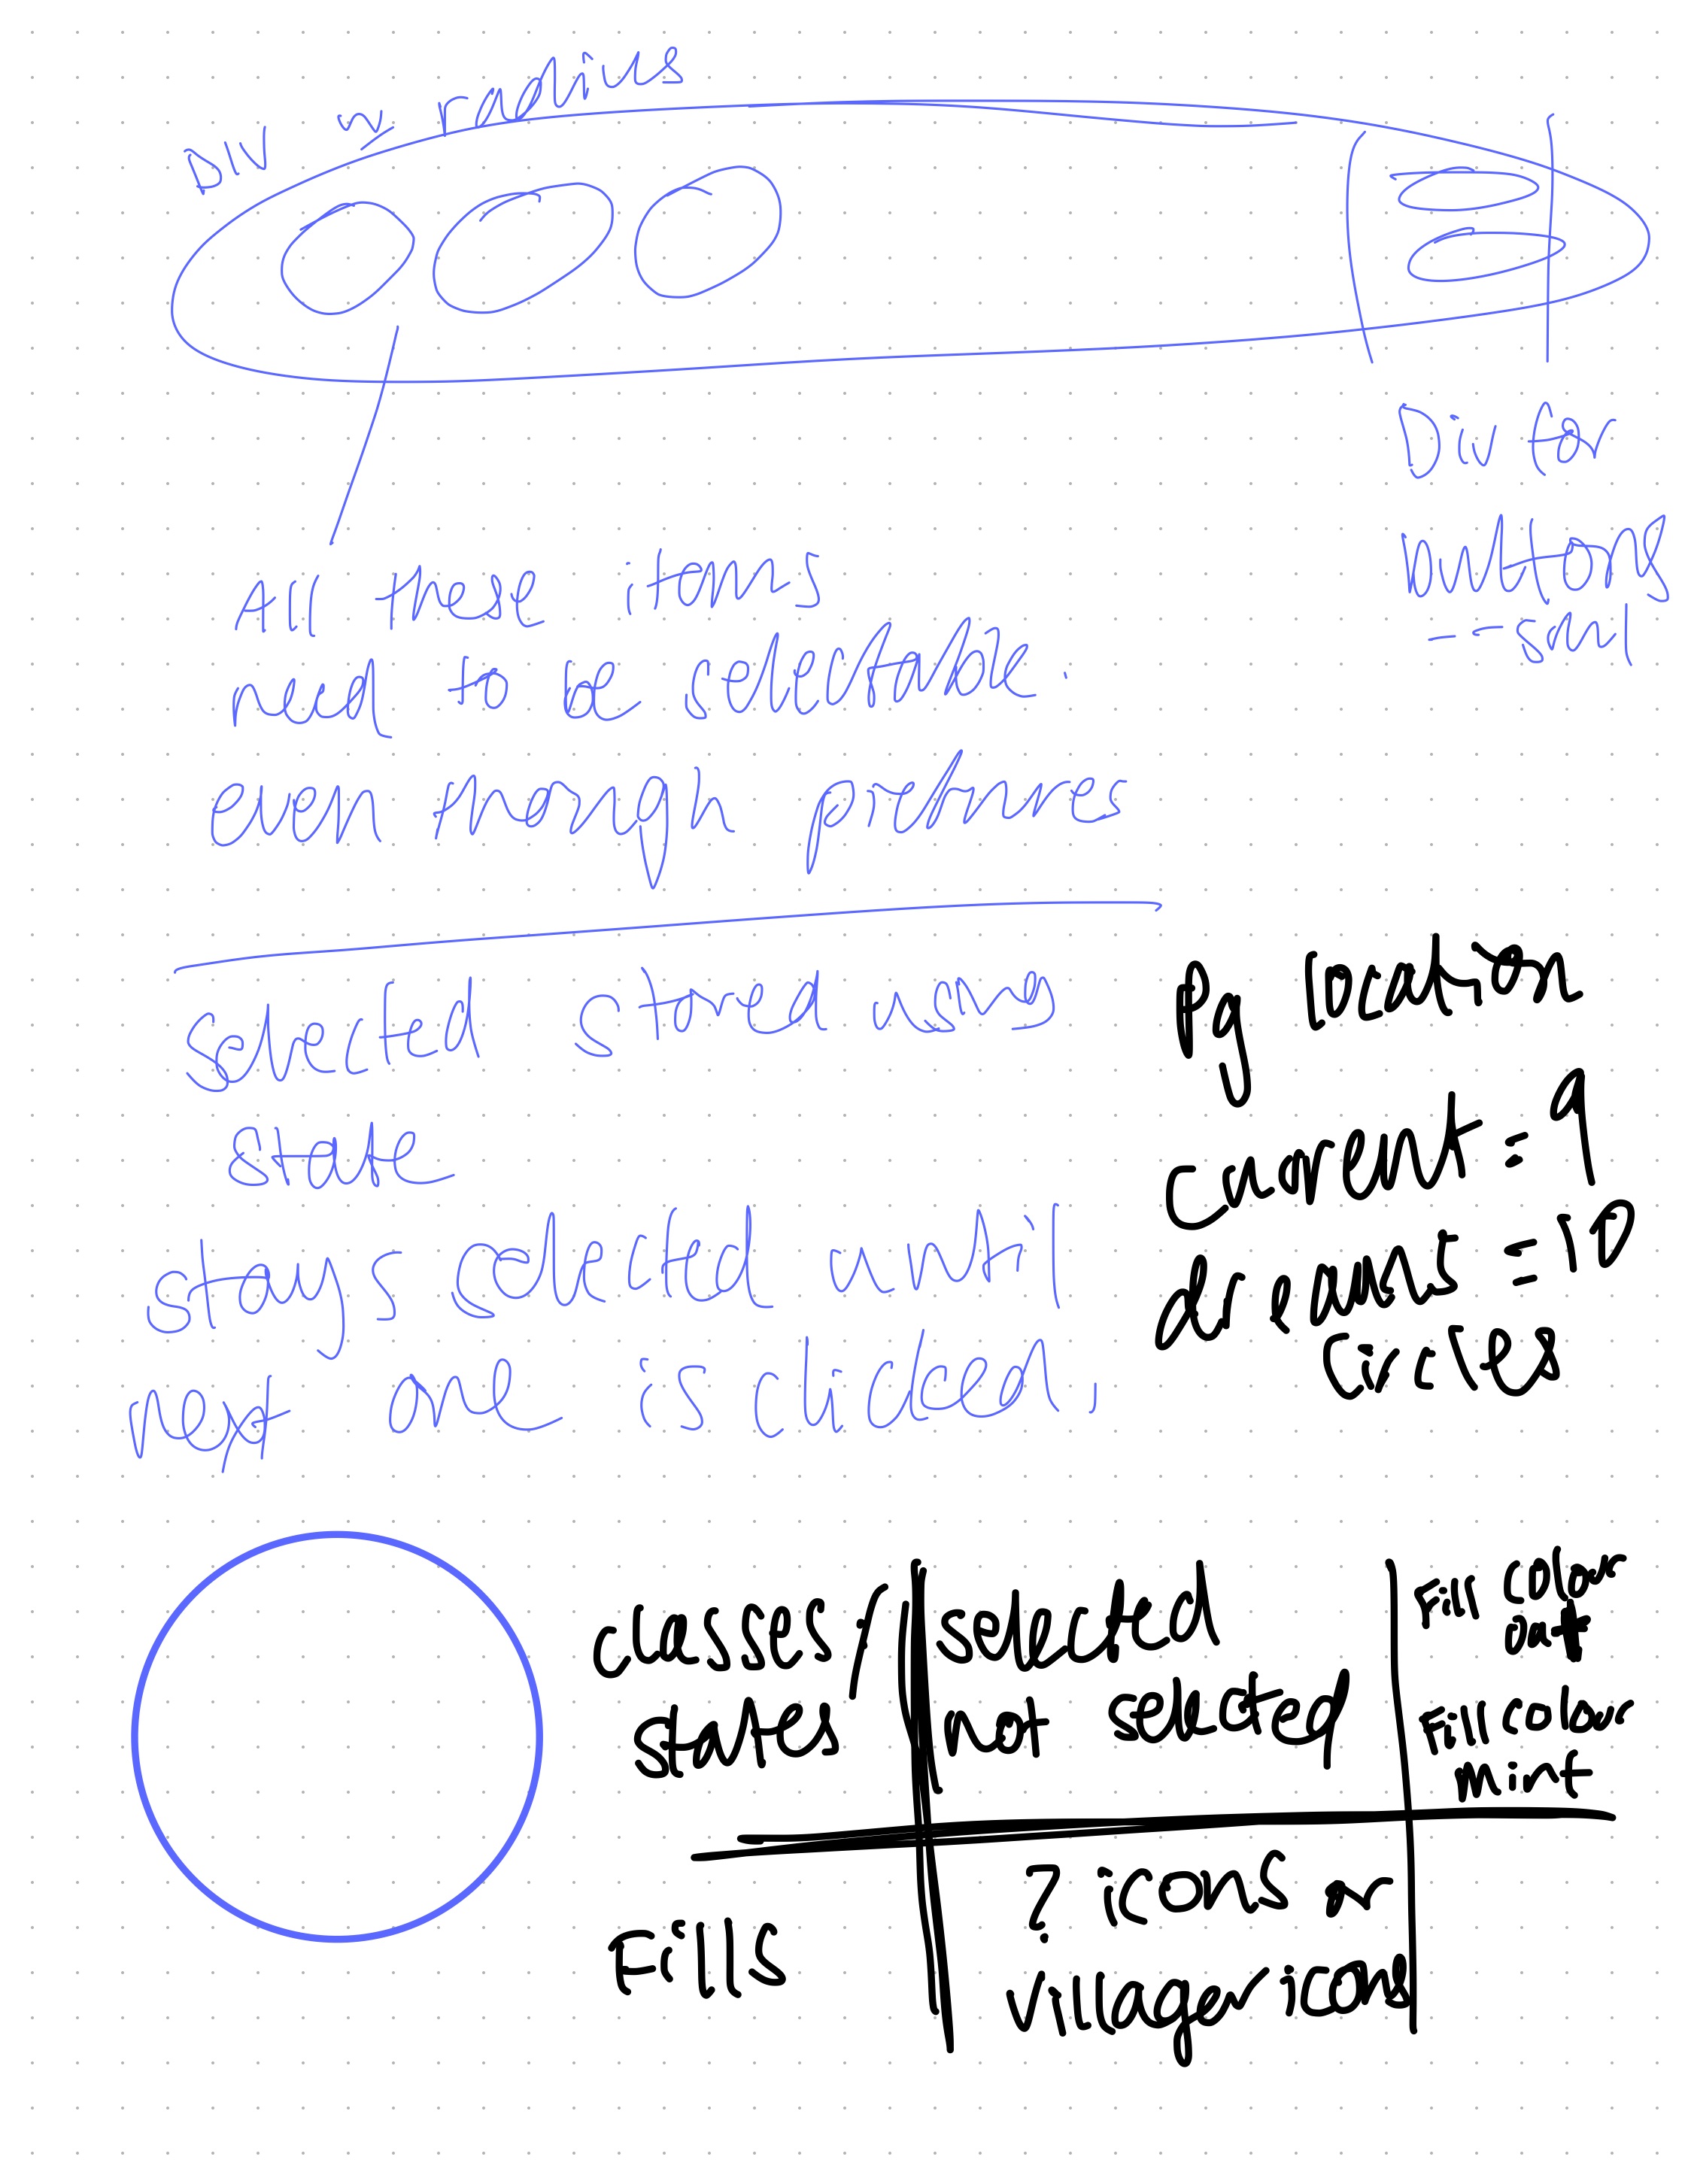 Div w radius
Div for
buttons
All these items
need to be selectable.
even though pictures
selected stored using
state
stays selected until
next one is clicked.
Pg location
current = 9
dreams = 10
circles
classes/ selected Fill colour oat
states not selected Fill colour mint
Fills ? icons or
villager icons